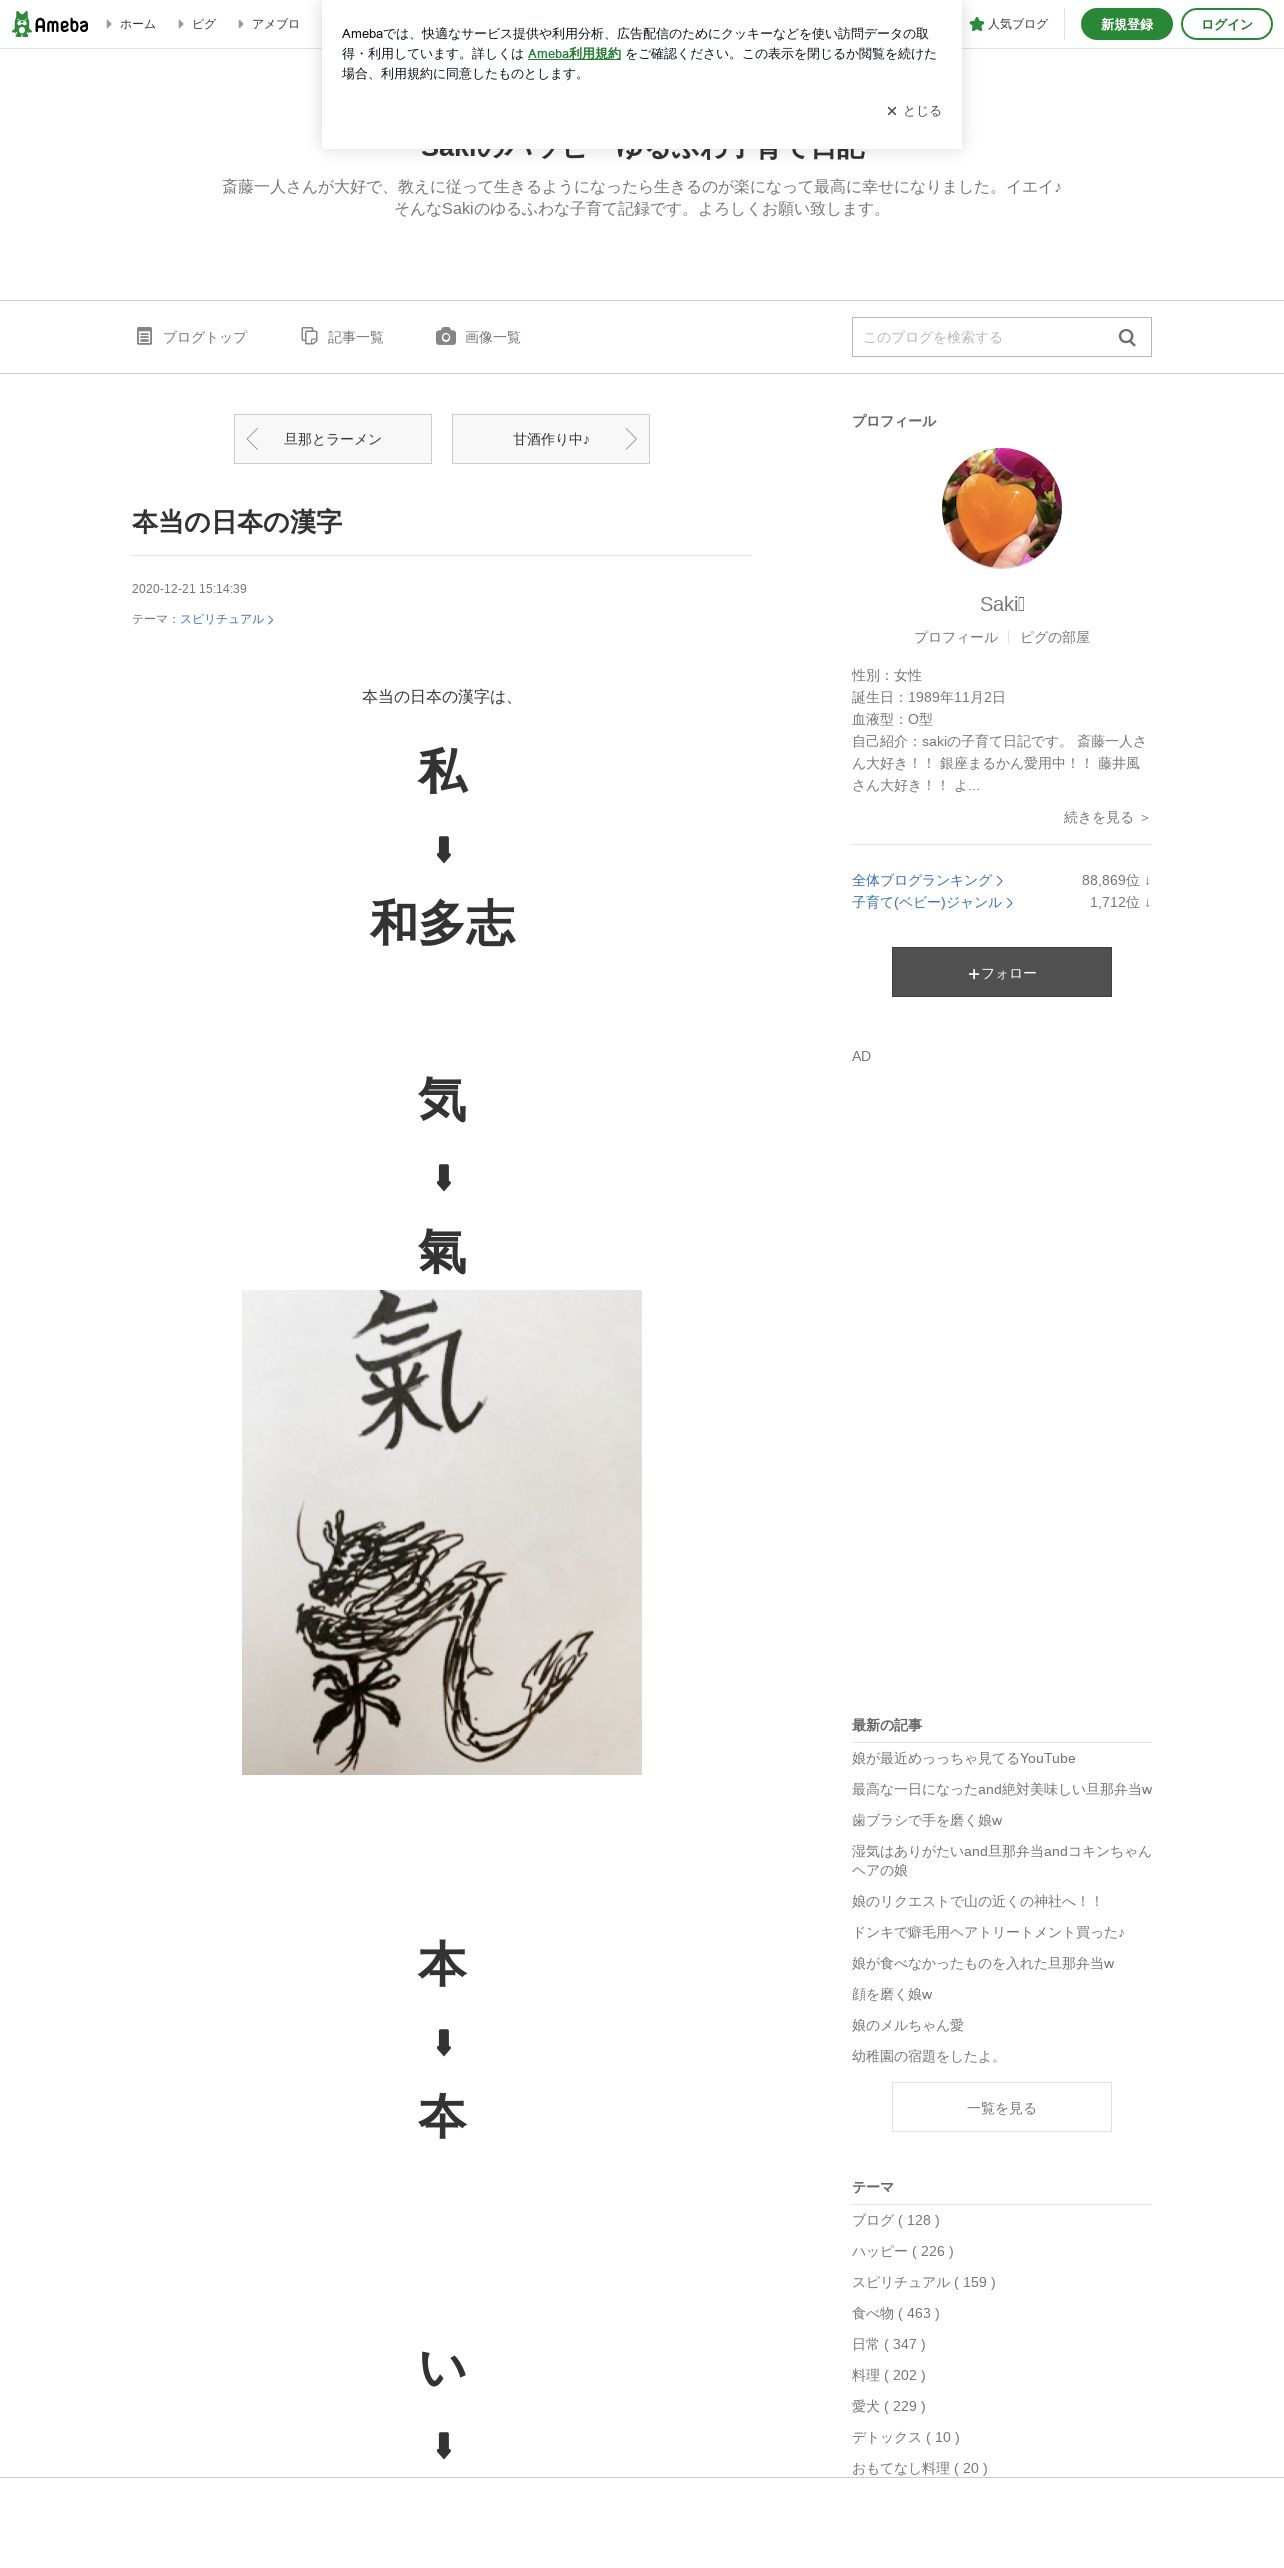 Ameba
ホーム
ピグ
アメブロ
人気ブログ
新規登録
ログイン
Amebaでは、快適なサービス提供や利用分析、広告配信のためにクッキーなどを使い訪問データの取
得・利用しています。詳しくは Ameba利用規約 をご確認ください。この表示を閉じるか閲覧を続けた
場合、利用規約に同意したものとします。
とじる
Sakiのハッピーゆるふわ子育て日記
斎藤一人さんが大好で、教えに従って生きるようになったら生きるのが楽になって最高に幸せになりました。イエイ♪
そんなSakiのゆるふわな子育て記録です。よろしくお願い致します。
ブログトップ
記事一覧
画像一覧
このブログを検索する
旦那とラーメン
甘酒作り中♪
本当の日本の漢字
2020-12-21 15:14:39
テーマ：スピリチュアル
本当の日本の漢字は、
私
⬇
和多志
気
⬇
氣
氣
氣
本
⬇
夲
い
⬇
プロフィール
Saki
プロフィール
ピグの部屋
性別：女性
誕生日：1989年11月2日
血液型：O型
自己紹介：sakiの子育て日記です。 斎藤一人さ
ん大好き！！ 銀座まるかん愛用中！！ 藤井風
さん大好き！！ よ...
続きを見る ＞
全体ブログランキング 88,869位 ↓
子育て(ベビー)ジャンル 1,712位 ↓
+フォロー
AD
最新の記事
娘が最近めっっちゃ見てるYouTube
最高な一日になったand絶対美味しい旦那弁当w
歯ブラシで手を磨く娘w
湿気はありがたいand旦那弁当andコキンちゃん
ヘアの娘
娘のリクエストで山の近くの神社へ！！
ドンキで癖毛用ヘアトリートメント買った♪
娘が食べなかったものを入れた旦那弁当w
顔を磨く娘w
娘のメルちゃん愛
幼稚園の宿題をしたよ。
一覧を見る
テーマ
ブログ ( 128 )
ハッピー ( 226 )
スピリチュアル ( 159 )
食べ物 ( 463 )
日常 ( 347 )
料理 ( 202 )
愛犬 ( 229 )
デトックス ( 10 )
おもてなし料理 ( 20 )